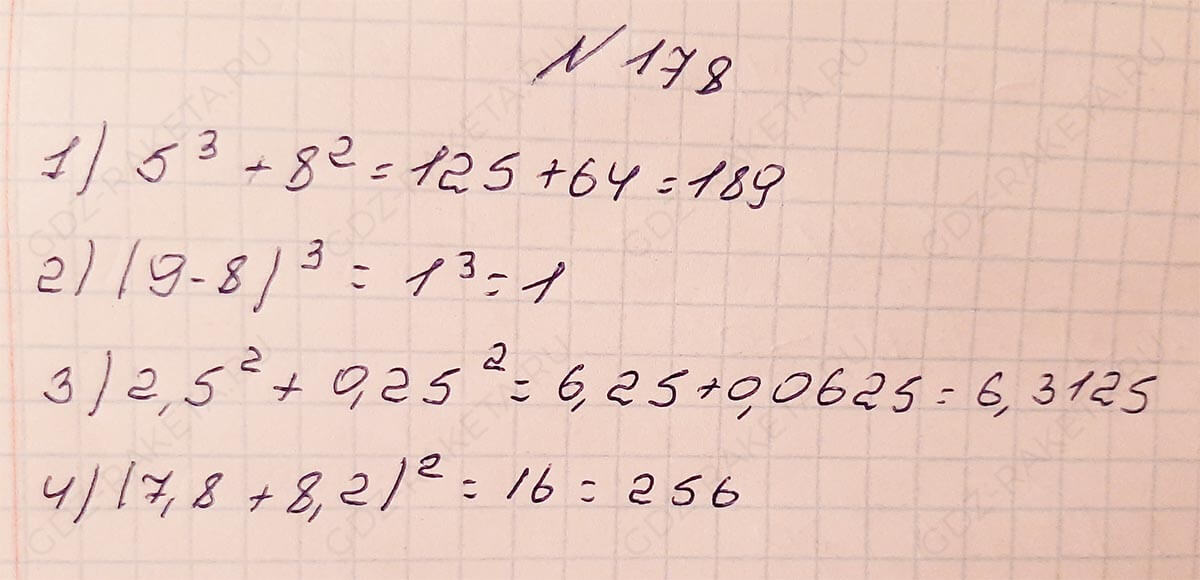 N 178
1) 5³ + 8² = 125 + 64 = 189
2) (9 - 8)³ = 1³ = 1
3) 2,5² + 0,25² = 6,25 + 0,0625 = 6,3125
4) (7,8 + 8,2)² = 16 = 256
GDZ-RAKETA.RU